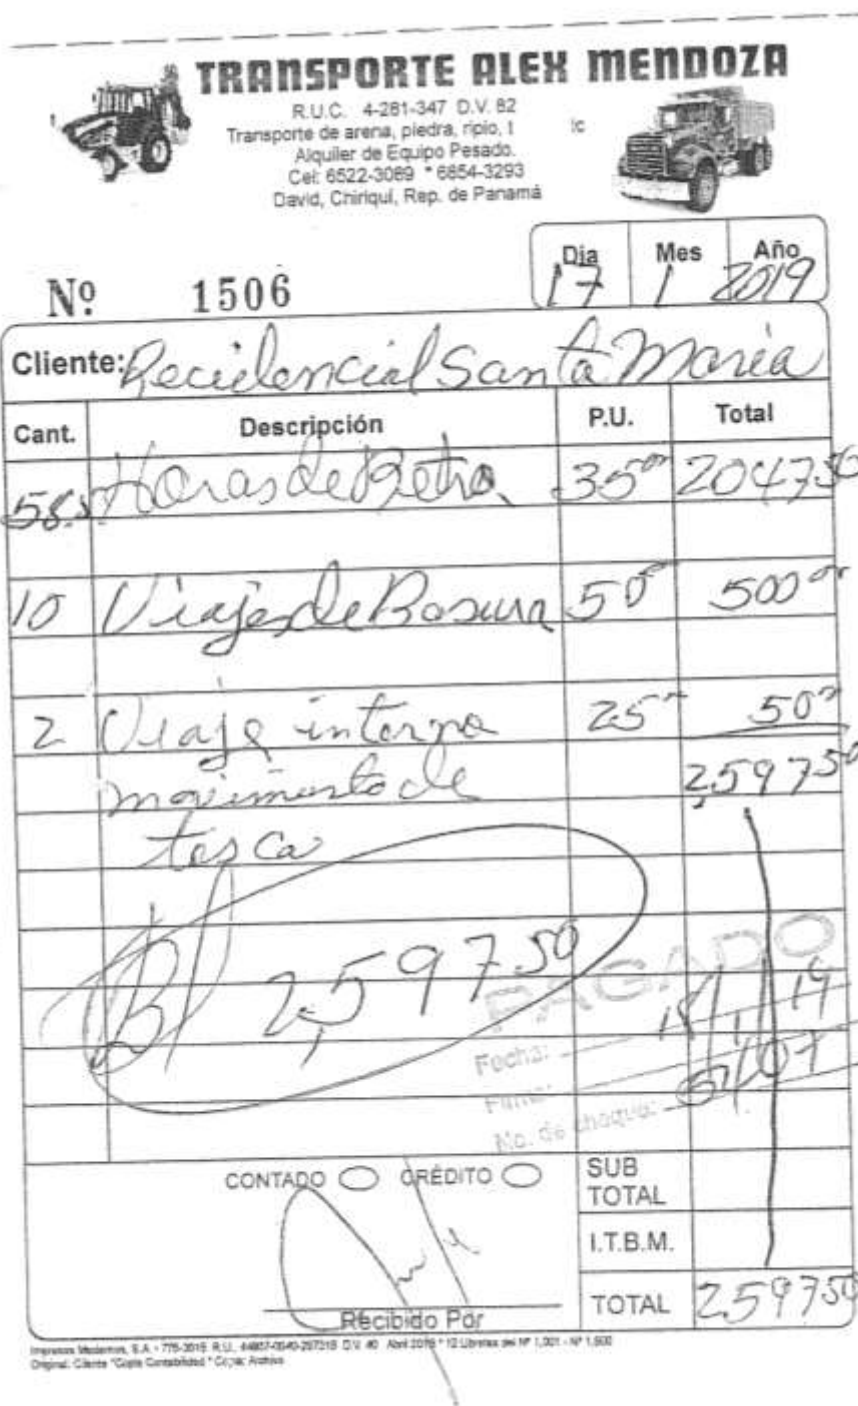 TRANSPORTE ALEX MENDOZA
R.U.C. 4-281-347 D.V. 82
Transporte de arena, piedra, ripio, t ic
Alquiler de Equipo Pesado.
Cel: 6522-3089 * 6854-3293
David, Chiriquí, Rep. de Panamá
Dia Mes Año
17 1 2019
Nº 1506
Cliente: Recidencial Santa Maria
Cant. Descripción P.U. Total
58.5 Horas de Retro 35.00 2047.50
10 Viajes de Basura 50 500.00
2 Viaje interno 25.00 50.00
movimiento de 2,597.50
tosca
B/ 2,597.50
PAGADO
Fecha: 18/1/19
Firma:
No. de cheque:
CONTADO CRÉDITO
SUB TOTAL
I.T.B.M.
TOTAL 2597.50
Recibido Por
Impresos Modernos, S.A. - 775-3015 D.V. 40 Abril 2016 * 12 Libretas del Nº 1,001 - Nº 1,600
Original: Cliente *Copia Contabilidad * Copia: Archivo